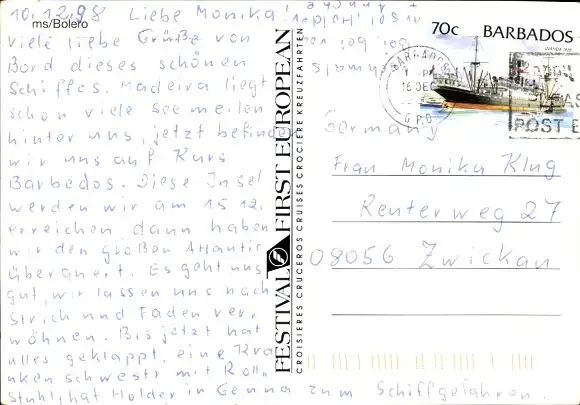 10.12.98 Liebe Monika!
ms/Bolero
viele liebe Grüße von
Bord dieses schönen
Schiffes. Madeira liegt
schon viele Seemeilen
hinter uns, jetzt befinden
wir uns auf Kurs
Barbedos. Diese Insel
werden wir am 15.12.
erreichen, dann haben
wir den großen Atlantic
überquert. Es geht uns
gut, wir lassen uns nach
Strich und Faden ver,
wöhnen. Bis jetzt hat
alles geklappt, eine Kra
nkenschwestr mit Roll=
stuhl, hat Holder in Genua zum Schiff gefahren.
FESTIVAL FIRST EUROPEAN
CROISIERES CRUCEROS CRUISES CROCIERE KREUZFAHRTEN
70c BARBADOS
BARBADOS
16 DEC
G.P.O.
POST E
Germany
Frau Monika Klug
Renterweg 27
08056 Zwickau